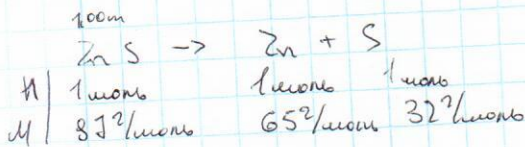 100т
ZnS → Zn + S
n | 1 моль 1 моль 1 моль
M | 97 г/моль 65 г/моль 32 г/моль